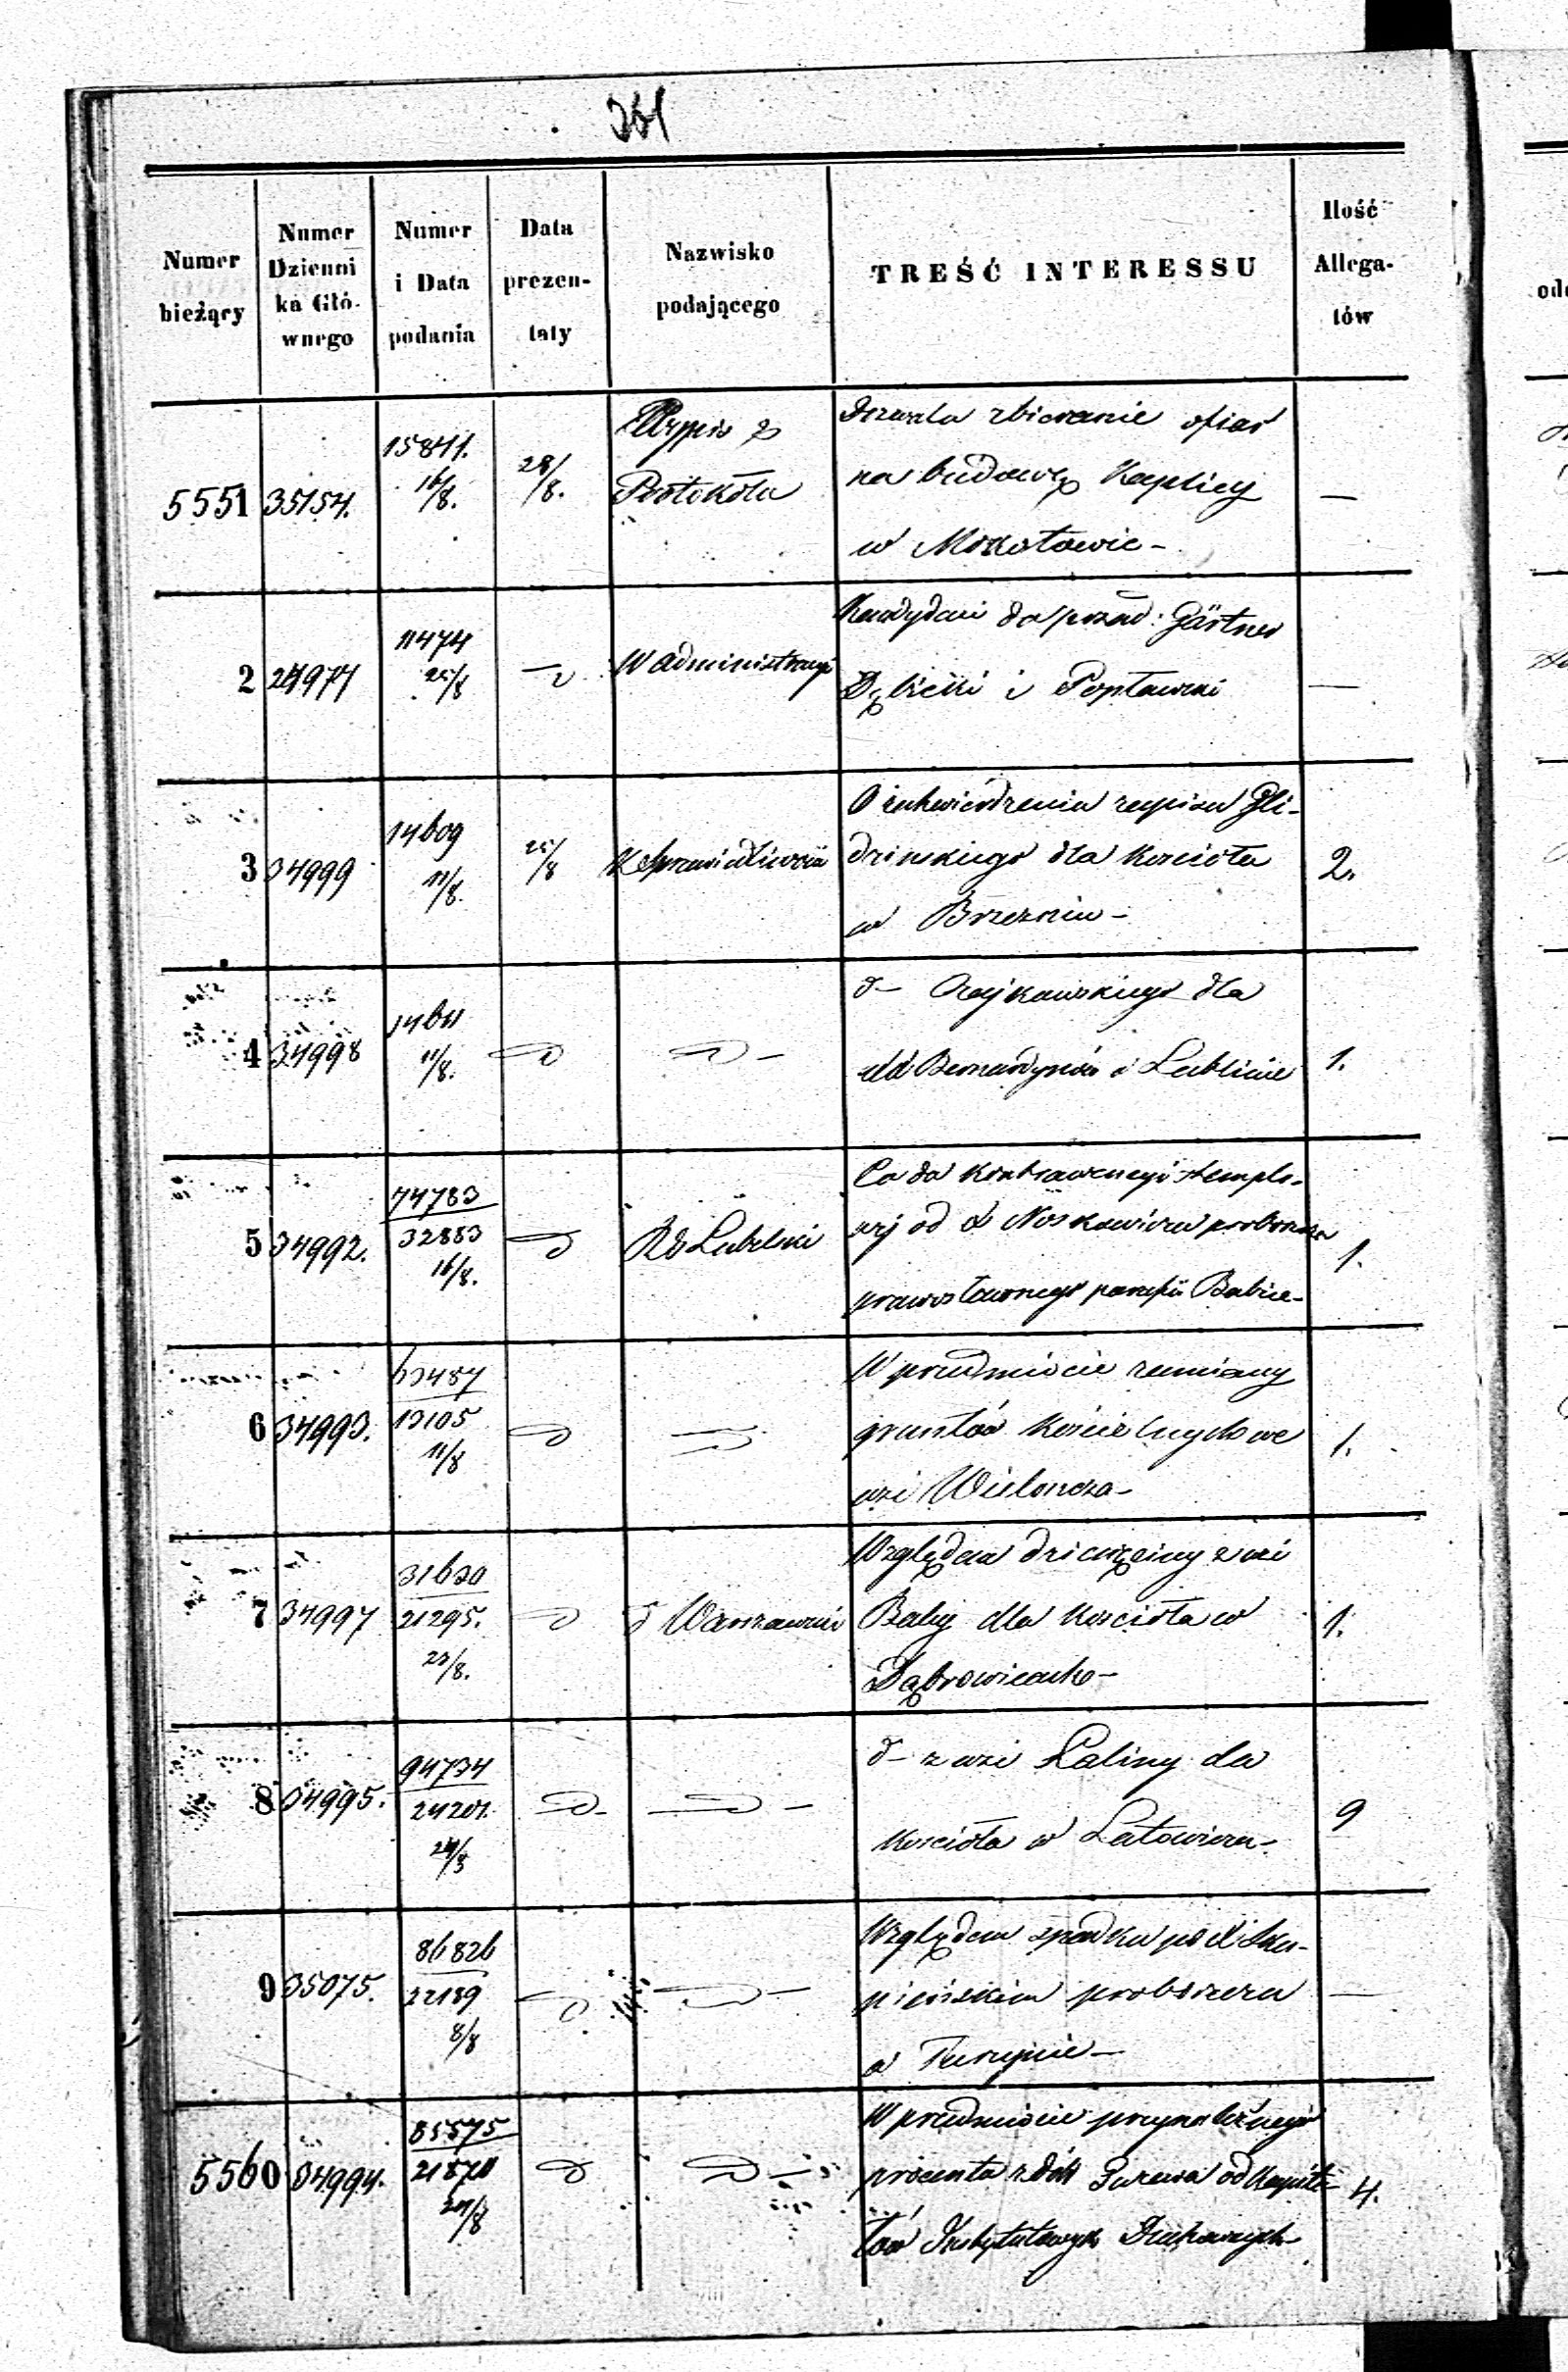 351
Numer bieżący
Numer Dzienni ka Głó- wnego
Numer i Data podania
Data prezen- taty
Nazwisko podającego
TREŚĆ INTERESSU
Ilość Allega- tów
5551 35154. 15811. 16/8. 28/8. Wypis z Protokółu
zbieranie ofiar
na budowę Kaplicy
w Mokotowie - —
2 11474 25/8 W administracyi
Kandydaci do posad: Gärtner
i Popławski —
3 34999 14609 11/8. 25/8 K Sprawiedliwości
O zatwierdzenie zapisu Gli-
dzinskiego dla Kościoła
w Brzezniu - 2.
4 34998 14611 11/8.
dla
XX Bernardynów w Lublinie 1.
5 34992. 74783 32883 16/8. RG Lubelski
Co do kontrawencyi stemplo-
wej od X Noskowicza proboszcza
prawosławnego parafii Babice - 1.
6 34993. 63487 13105 11/8
W przedmiocie zamiany
gruntów Kościelnych we
wsi Wieloncza - 1.
7 34997 31620 21295. 23/8. d Warszawski
Względem dziesięciny z wsi
Baby dla Kościoła w
Dąbrowicach - 1.
8 34995. 94734 24201.
d - z wsi Laliny dla
Kościoła w Latowiczu - 9
9 35075. 86826 22189 8/8
Względem spadku po X Sku-
pieńskim proboszczu
w - —
5560 34994. 85575
W przedmiocie przynależnego
procentu z dóbr od Kapita-
łów Instytutowych Duchownych 4.